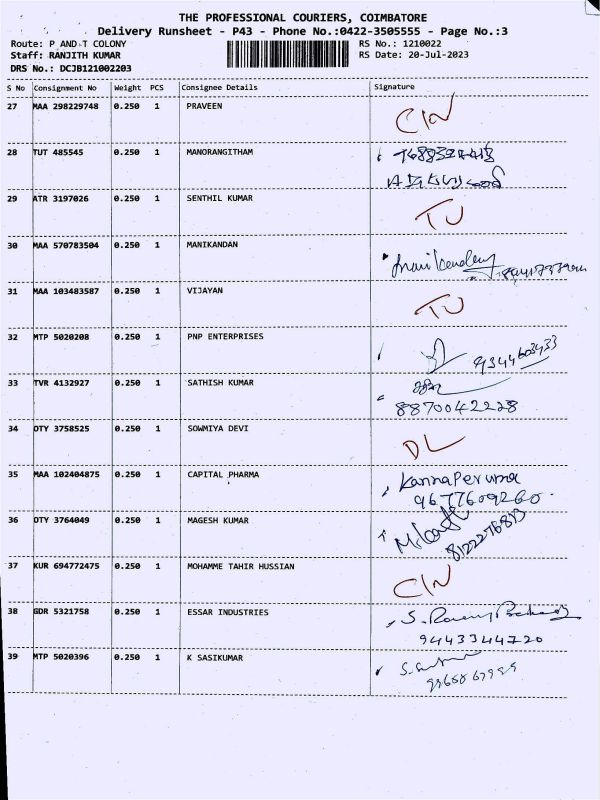 THE PROFESSIONAL COURIERS, COIMBATORE
Delivery Runsheet - P43 - Phone No.:0422-3505555 - Page No.:3
Route: P AND T COLONY
Staff: RANJITH KUMAR
DRS No.: DCJB121002203
RS No.: 1210022
RS Date: 20-Jul-2023
S No Consignment No Weight PCS Consignee Details Signature
27 MAA 298229748 0.250 1 PRAVEEN CIN
28 TUT 485545 0.250 1 MANORANGITHAM
29 ATR 3197026 0.250 1 SENTHIL KUMAR TU
30 MAA 570783504 0.250 1 MANIKANDAN
31 MAA 103483587 0.250 1 VIJAYAN TU
32 MTP 5020208 0.250 1 PNP ENTERPRISES 9344603433
33 TVR 4132927 0.250 1 SATHISH KUMAR
8870042228
34 DTY 3758525 0.250 1 SOWMIYA DEVI DL
35 MAA 102404875 0.250 1 CAPITAL PHARMA KannaPeruma
9677609260
36 DTY 3764049 0.250 1 MAGESH KUMAR
37 KUR 694772475 0.250 1 MOHAMME TAHIR HUSSIAN CIN
38 GDR 5321758 0.250 1 ESSAR INDUSTRIES
9443344720
39 MTP 5020396 0.250 1 K SASIKUMAR